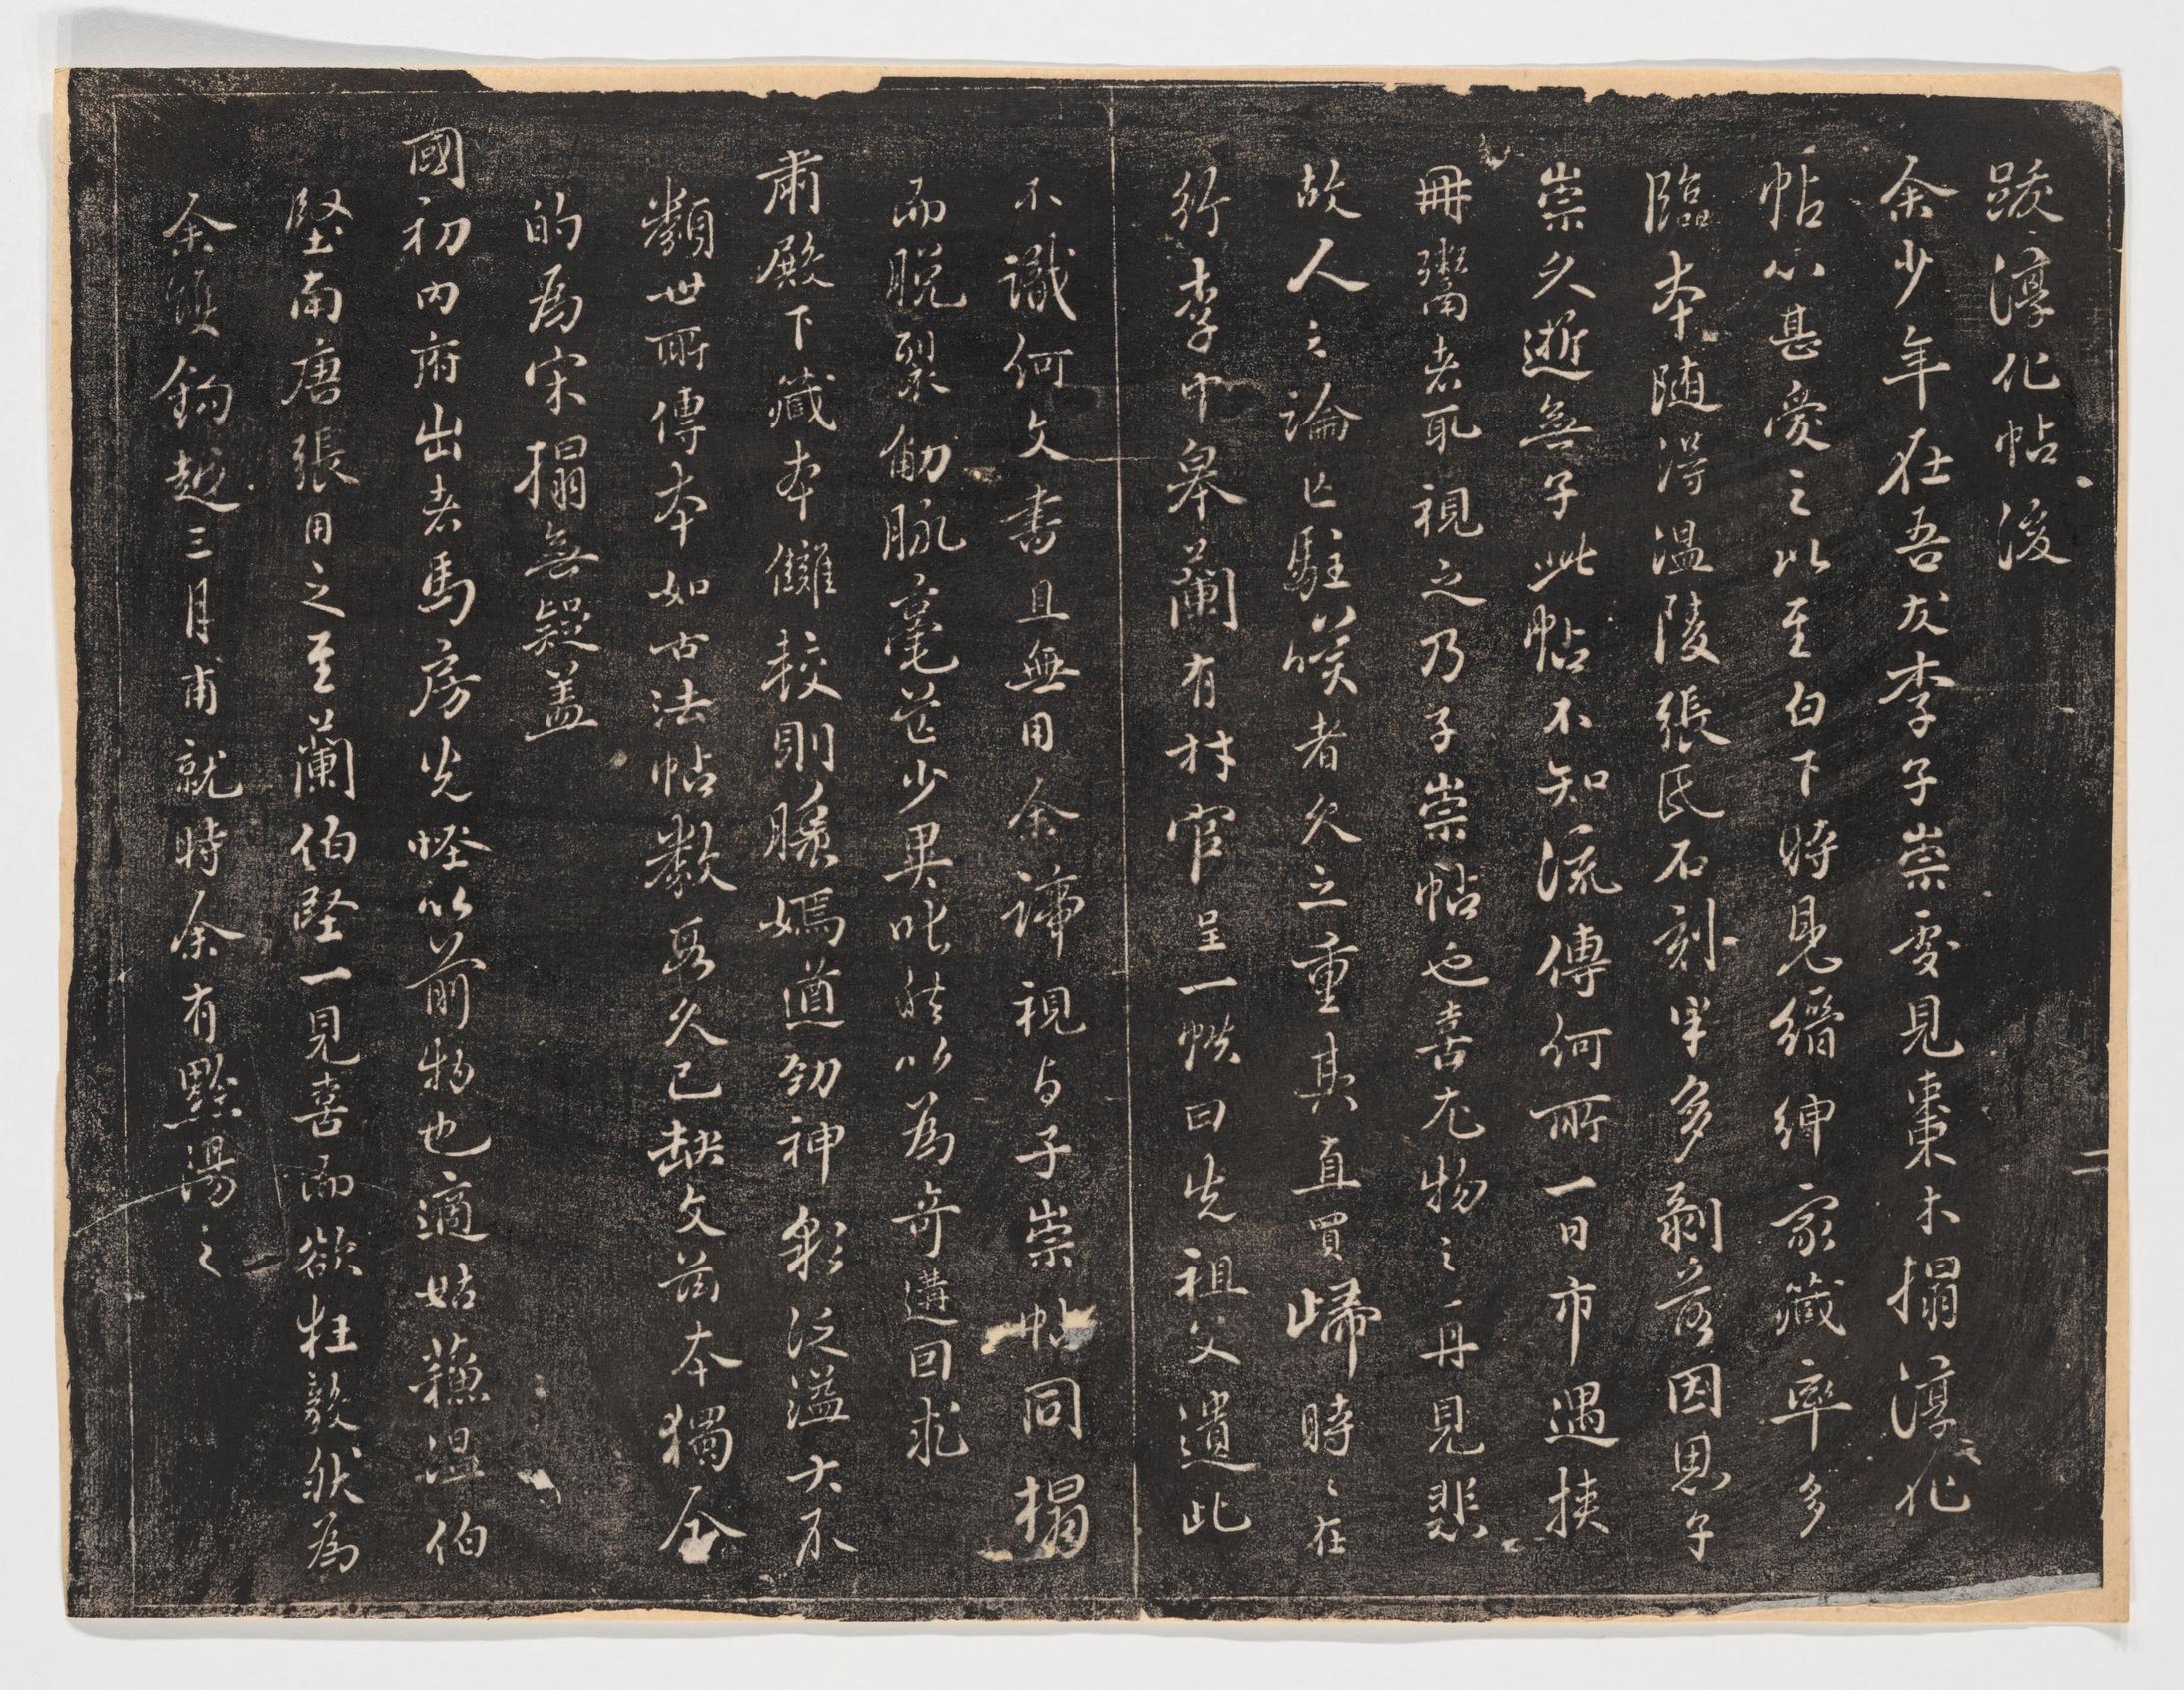 跋淳化帖後
余少年在吾友李子崇處見棗木搨淳化
帖心甚愛之以至白下時見縉紳家藏率多
臨本随得温陵張氏石刻半多剥落因思子
崇久逝無子此帖不知流傳何所一日市遇挟
冊鬻者取視之乃子崇帖也喜尤物之再見悲
故人之論亡駐嘆者久之重其直買歸時〻在
行李中皋蘭有材官呈一帙曰先祖父遺此
不識何文書且無用余諦視与子崇帖同搨
而脱裂觔脉毫芒少異咤然以為奇遘回求
肅殿下藏本讎較則賸媽遒勁神彩泛溢大不
類世所傳本如古法帖數段久已缺文茲本獨全
的為宋搨無疑蓋
國初内府出者馬房光怪以前物也適姑蘇温伯
堅南唐張用之至蘭伯堅一見喜而欲狂毅然為
余雙鈎越三月甫就時余有黔湯之